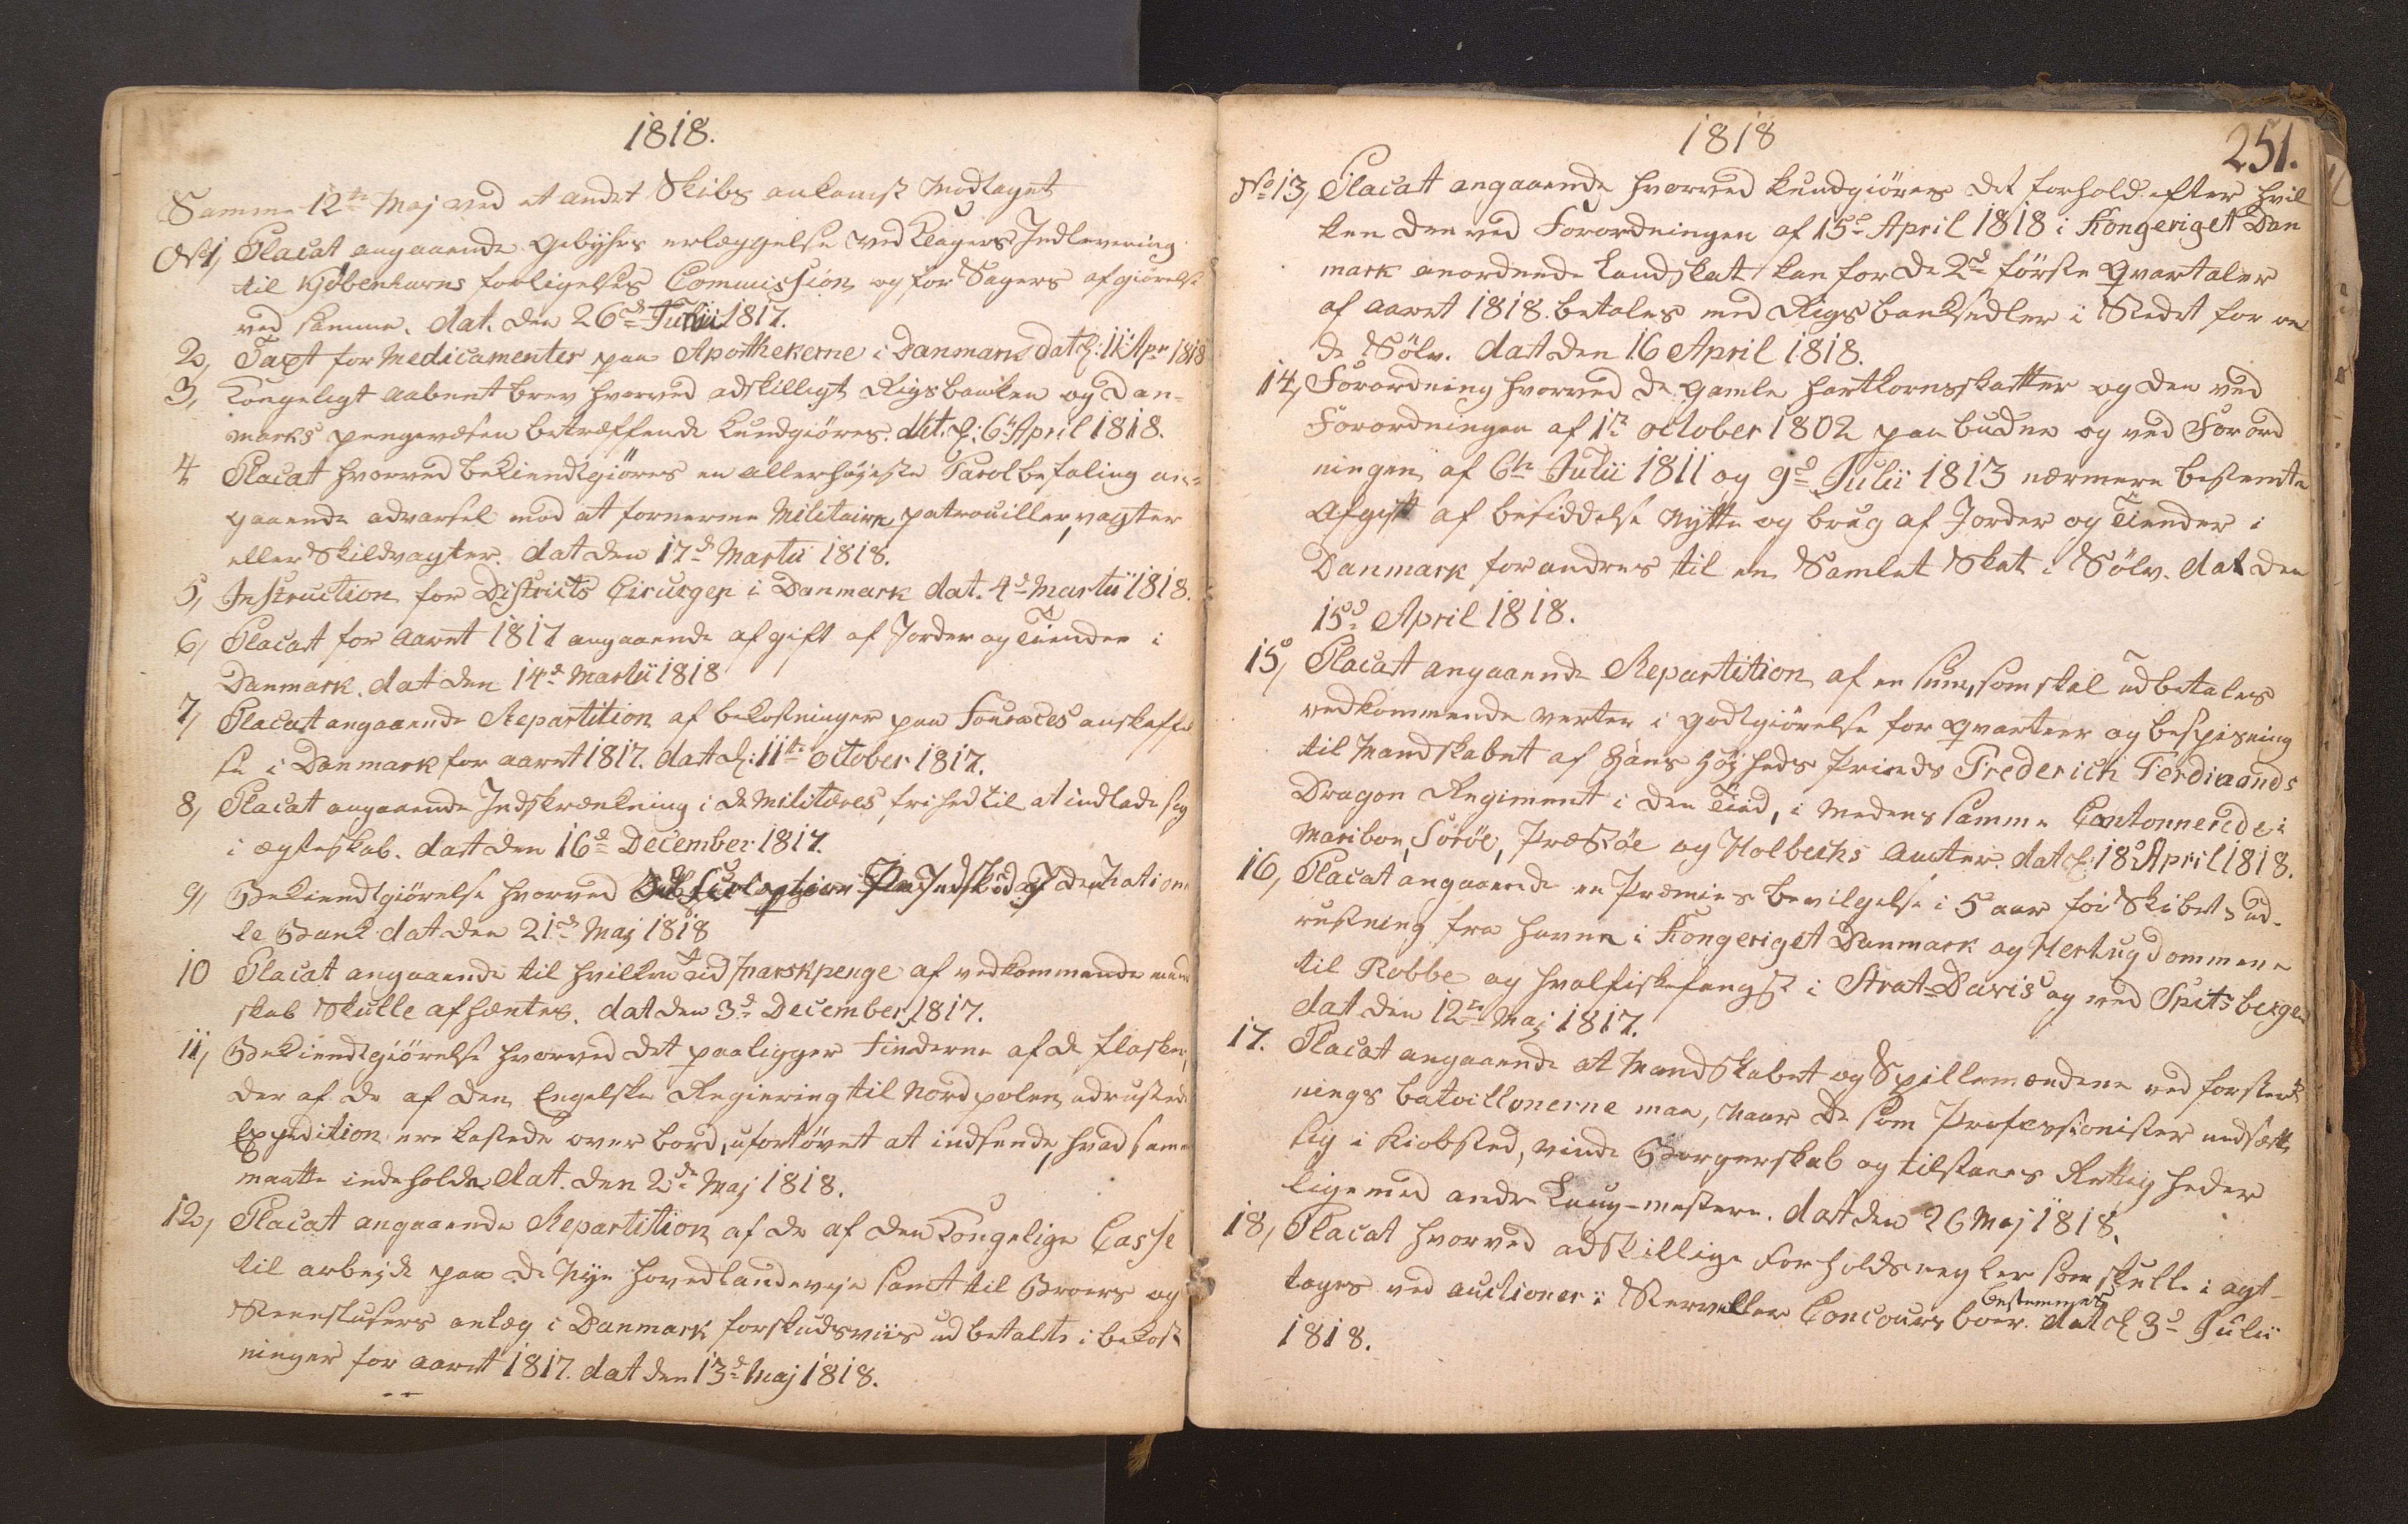 1818.
Samme 12te Maj ved et andet Skibs ankomst modtaget
No 1, Placat angaaende Gebyhrs erlæggelse ved Klagers Indlevering
til Kjöbenhavns forligelses Commission og for Sagers afgiörelse
ved samme. dat. den 26d Julii 1817.
2, Taxt for Medicamenter paa Apothekerne i Danmark dat d: 11 Apr 1818
3, Kongeligt aabent brev hvorved adskilligt Rigsbanken og Dan-
marks pengevæsen betræffende kundgiöres. dat. d: 6t April 1818.
4 Placat hvorved bekiendtgiöres en allerhöjeste Parolbefaling an-
gaaende advarsel mod at fornerme Militaire patrouiller, vagter
eller Skildvagter. dat den 17d Martii 1818.
5, Instruction for Districts Cirurger i Danmark dat. 4d Martii 1818.
6, Placat for Aaret 1817 angaaende afgift af Jorder og Tiender i
Danmark. dat den 14d Martii 1818
7, Placat angaaende Repartition af bekostninger paa Fourages anskaffel
se i Danmark for aaret 1817. dat d: 11te October 1817.
8, Placat angaaende Indskrænkning i de Militæres frihed til at indlade sig
i ægteskab. dat den 16d December 1817.
9, Bekiendtgiörelse hvorved den Nationa
le Bank dat den 21d Maj 1818
10 Placat angaaende til hvilken Tid Marskpenge af vedkommende mand
skab Skulle afhæntes. dat den 3d December 1817.
11, Bekiendtgiörelse hvorved det paaligger finderne af de flasker,
der af de af den Engelske Regiering til Nordpolen udrustede
Expedition ere kastede over bord, ufortövet at indsende, hvad samme
maatte indeholde dat. den 2de Maj 1818.
12, Placat angaaende Repartition af de af den Kongelige Casse
til arbejde paa de Nye hovedlandeveje samt til Broers og
Steenslusers anlæg i Danmark forskudsviis udbetalte i bekost
ninger for aaret 1817. dat den 13d Maj 1818.
1818
251.
No 13, Placat angaaende hvorved kundgiöres det forhold efter hvil
ken den ved Forordningen af 15d April 1818 i Kongeriget Dan
mark anordnede Landskat kan for de 2de förste Qvartaler
af aaret 1818 betales med Rigsbanksedler i Stedet for re
de Sölv. dat den 16 April 1818.
14, Forordning hvorved de gamle Hartkornsskatter og den ved
Forordningen af 1te October 1802 paabudne og ved Forord
ningen af 6te Julii 1811 og 9d Julii 1813 nærmere bestemte
Afgift af besiddelse nytte og brug af Jorder og Tiender i
Danmark forandres til en Samlet Skat i Sölv. dat den
15d April 1818.
15, Placat angaaende Repartition af en sum, som skal udbetales
vedkommende verter i godtgiörelse for qvarteer og bespisning
til Mandskabet af Hans Höjheds Prinds Frederich Ferdinands
Dragon Regiment i den Tiid, i medens samme Cantonnerede i
Mariboe, Soröe, Præstöe og Holbechs Amter. dat d: 18d April 1818.
16, Placat angaaende en Præmies bevilgelse i 5 aar for Skibets ud-
rustning fra havne i Kongeriget Danmark og Hertugdommene
til Robbe og hvalfiskefangst i Strat-Davis og ved Spitsbergen
dat den 12te Maj 1817.
17. Placat angaaende at Mandskabet og Spillemændene ved forsterk
nings batoillonerne maa, naar de som Professionister nedsætte
sig i Kiobsted, vinde Borgerskab og tilstaaes Rettigheder
ligemed andre Laug-mestere. dat den 26 Maj 1818.
18, Placat hvorved adskillige Forholdsregler som skulle i agt-
tages ved auctioner i Sterv eller Concours boer bestemmes dat d 3d Julii
1818.